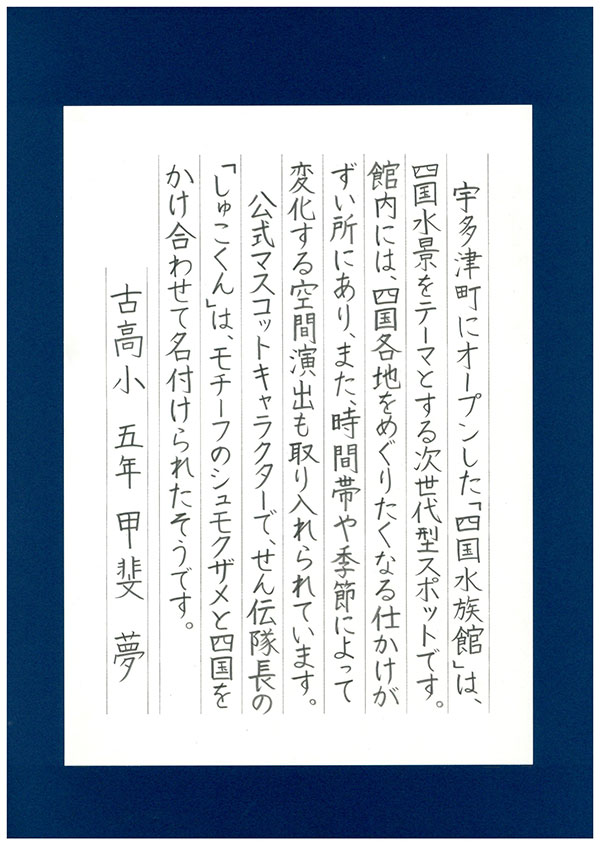 宇多津町にオープンした「四国水族館」は、
四国水景をテーマとする次世代型スポットです。
館内には、四国各地をめぐりたくなる仕かけが
ずい所にあり、また、時間帯や季節によって
変化する空間演出も取り入れられています。
公式マスコットキャラクターで、せん伝隊長の
「しゅこくん」は、モチーフのシュモクザメと四国を
かけ合わせて名付けられたそうです。
古高小 五年 甲斐 夢